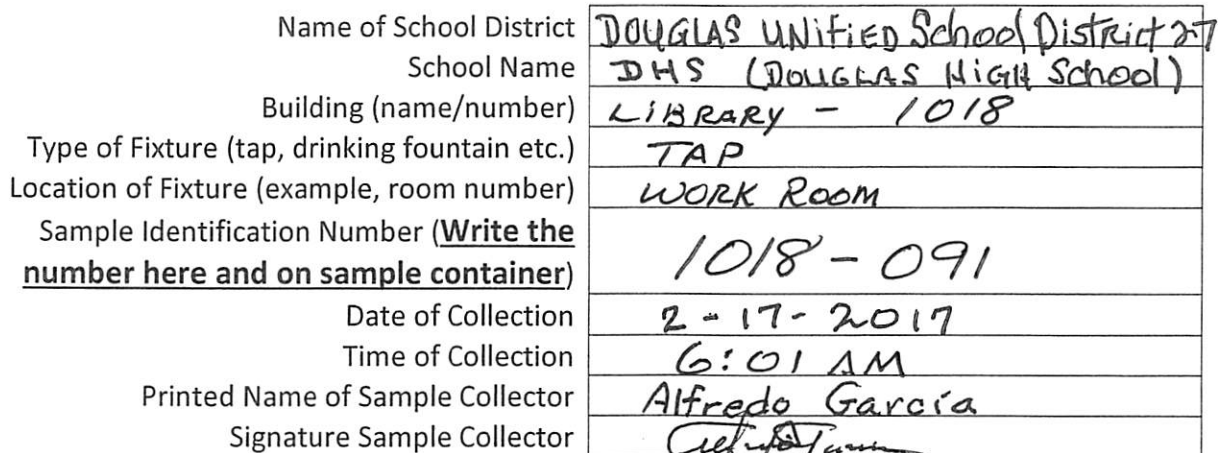 Name of School District DOUGLAS UNiFiED School District 27
School Name DHS (DOUGLAS HiGH School)
Building (name/number) LiBRARY - 1018
Type of Fixture (tap, drinking fountain etc.) TAP
Location of Fixture (example, room number) WORK ROOM
Sample Identification Number (Write the
number here and on sample container) 1018-091
Date of Collection 2-17-2017
Time of Collection 6:01 AM
Printed Name of Sample Collector Alfredo Garcia
Signature Sample Collector